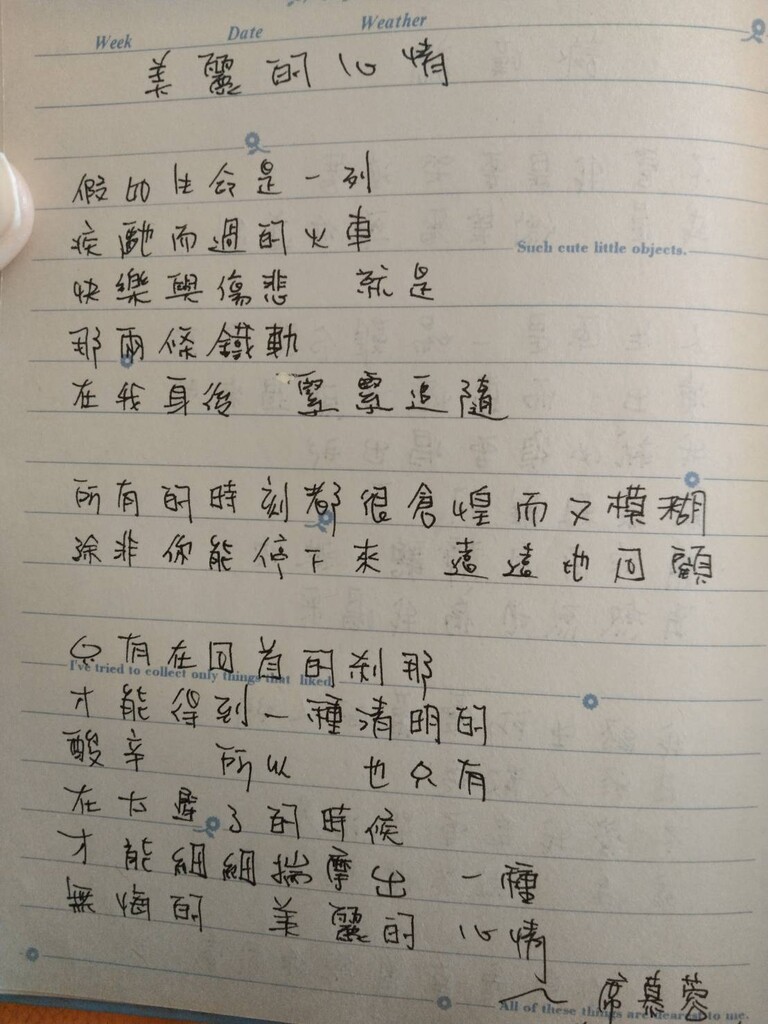 Week Date Weather
美麗的心情
假如生命是一列
疾馳而過的火車
Such cute little objects.
快樂與傷悲 就是
那兩條鐵軌
在我身後 緊緊追隨
所有的時刻都很倉惶而又模糊
除非你能停下來 遠遠地回顧
只有在回首的剎那
I've tried to collect only things that liked
才能得到一種清明的
酸辛 所以 也只有
在太遲了的時候
才能細細揣摩出 一種
無悔的 美麗的心情
~ 席慕蓉
All of these things are dearest to me.